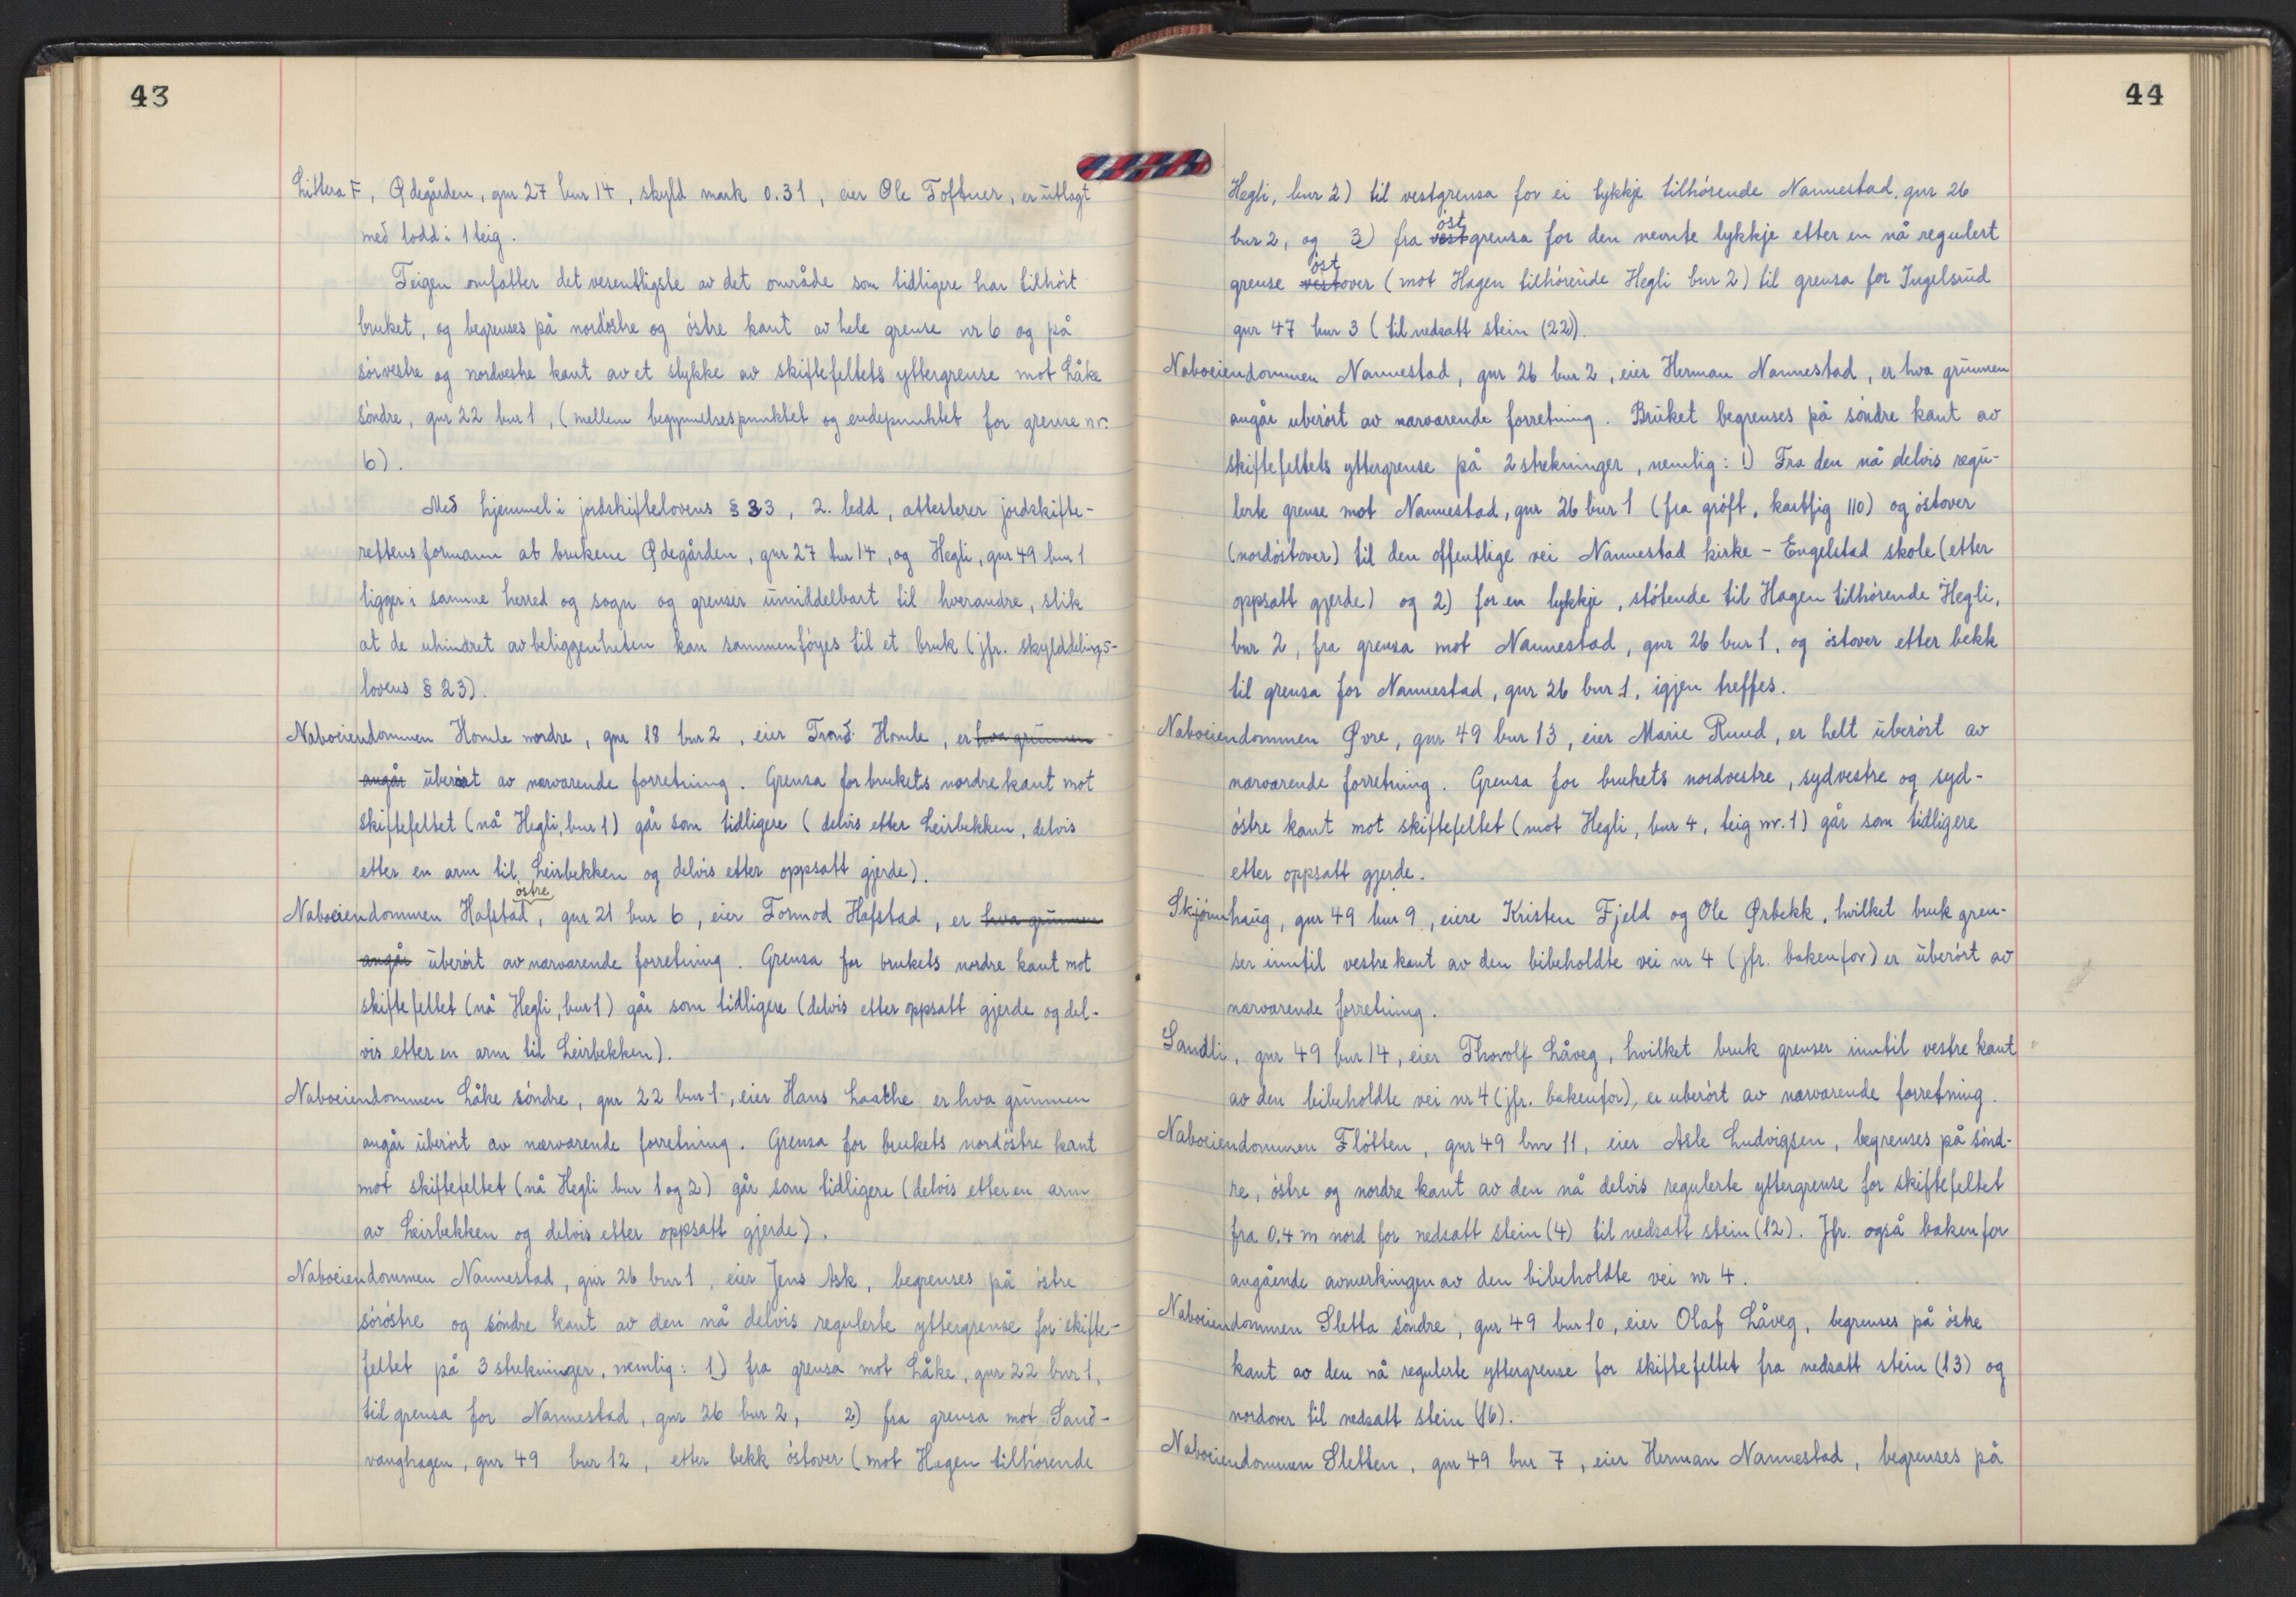 43
Littera F, Ødegården, gnr 27 bnr 14, skyld mark 0.31, eier Ole Toftner, er utlagt
med lodd i 1 teig.
Teigen omfatter det vesentligste av det område som tidligere har tilhørt
bruket, og begrenses på nordøstre og østre kant av hele grense nr 6 og på
sørvestre og nordvestre kant av et stykke av skiftefeltets yttergrense mot Låke
søndre, gnr 22 bnr 1, (mellem begynnelsespunktet og endepunktet for grense nr.
6).
Med hjemmel i jordskiftelovens § 33, 2. ledd, attesterer jordskifte-
rettens formann at brukene Ødegården, gnr 27 bnr 14, og Hegli, gnr 49 bnr 1
ligger i samme herred og sogn og grenser umiddelbart til hverandre, slik
at de uhindret av beliggenheten kan sammenføyes til et bruk (jfr. skylddelings-
lovens § 23).
Naboeiendommen Homle nordre, gnr 18 bnr 2, eier Trond Homle, er hva grunnen
angår uberørt av nærværende forretning. Grensa for brukets nordre kant mot
skiftefeltet (nå Hegli, bnr 1) går som tidligere (delvis etter Leirbekken, delvis
etter en arm til Leirbekken og delvis etter oppsatt gjerde).
østre
Naboeiendommen Hafstad, gnr 21 bnr 6, eier Tormod Hafstad, er hva grunnen
angår uberørt av nærværende forretning. Grensa for brukets nordre kant mot
skiftefeltet (nå Hegli, bnr 1) går som tidligere (delvis etter oppsatt gjerde og del-
vis etter en arm til Leirbekken).
Naboeiendommen Låke søndre, gnr 22 bnr 1, eier Hans Laache er hva grunnen
angår uberørt av nærværende forretning. Grensa for brukets nordøstre kant
mot skiftefeltet (nå Hegli bnr 1 og 2) går som tidligere (delvis etter en arm
av Leirbekken og delvis etter oppsatt gjerde).
Naboeiendommen Nannestad, gnr 26 bnr 1, eier Jens Ask, begrenses på østre
sørøstre og søndre kant av den nå delvis regulerte yttergrense for skifte-
feltet på 3 strekninger, nemlig: 1) fra grensa mot Låke, gnr 22 bnr 1,
til grensa for Nannestad, gnr 26 bnr 2, 2) fra grensa mot Sand-
vanghagen, gnr 49 bnr 12, etter bekk østover (mot Hagen tilhørende
44
Hegli, bnr 2) til vestgrensa for ei lykkje tilhørende Nannestad, gnr 26
øst
bnr 2, og 3) fra vestgrensa for den nevnte lykkje etter en nå regulert
øst
grense vestover (mot Hagen tilhørende Hegli bnr 2) til grensa for Ingelsrud
gnr 47 bnr 3 (til nedsatt stein (22)).
Naboeiendommen Nannestad, gnr 26 bnr 2, eier Herman Nannestad, er hva grunnen
angår uberørt av nærværende forretning. Bruket begrenses på søndre kant av
skiftefeltets yttergrense på 2 strekninger, nemlig: 1) Fra den nå delvis regu-
lerte grense mot Nannestad, gnr 26 bnr 1 (fra grøft, kartfig 110) og østover
(nordøstover) til den offentlige vei Nannestad kirke - Engelstad skole (etter
oppsatt gjerde) og 2) for en lykkje, støtende til Hagen tilhørende Hegli,
bnr 2, fra grensa mot Nannestad, gnr 26 bnr 1, og østover etter bekk
til grensa for Nannestad, gnr 26 bnr 1, igjen treffes.
Naboeiendommen Øvre, gnr 49 bnr 13, eier Marie Ruud, er helt uberørt av
nærværende forretning. Grensa for brukets nordvestre, sydvestre og syd-
østre kant mot skiftefeltet (mot Hegli, bnr 4, teig nr. 1) går som tidligere
etter oppsatt gjerde.
Skjønnhaug, gnr 49 bnr 9, eiere Kristen Fjeld og Ole Ørbekk, hvilket bruk gren-
ser inntil vestre kant av den bibeholdte vei nr 4 (jfr. bakenfor) er uberørt av
nærværende forretning.
Sandli, gnr 49 bnr 14, eier Thorolf Låveg, hvilket bruk grenser inntil vestre kant
av den bibeholdte vei nr 4 (jfr. bakenfor), er uberørt av nærværende forretning.
Naboeiendommen Fløtten, gnr 49 bnr 11, eier Asle Ludvigsen, begrenses på sønd-
re, østre og nordre kant av den nå delvis regulerte yttergrense for skiftefeltet
fra 0,4 m nord for nedsatt stein (4) til nedsatt stein (12). Jfr. også bakenfor
angående avmerkingen av den bibeholdte vei nr 4.
Naboeiendommen Sletta søndre, gnr 49 bnr 10, eier Olaf Låveg, begrenses på østre
kant av den nå regulerte yttergrense for skiftefeltet fra nedsatt stein (13) og
nordover til nedsatt stein (16).
Naboeiendommen Sletten, gnr 49 bnr 7, eier Herman Nannestad, begrenses på